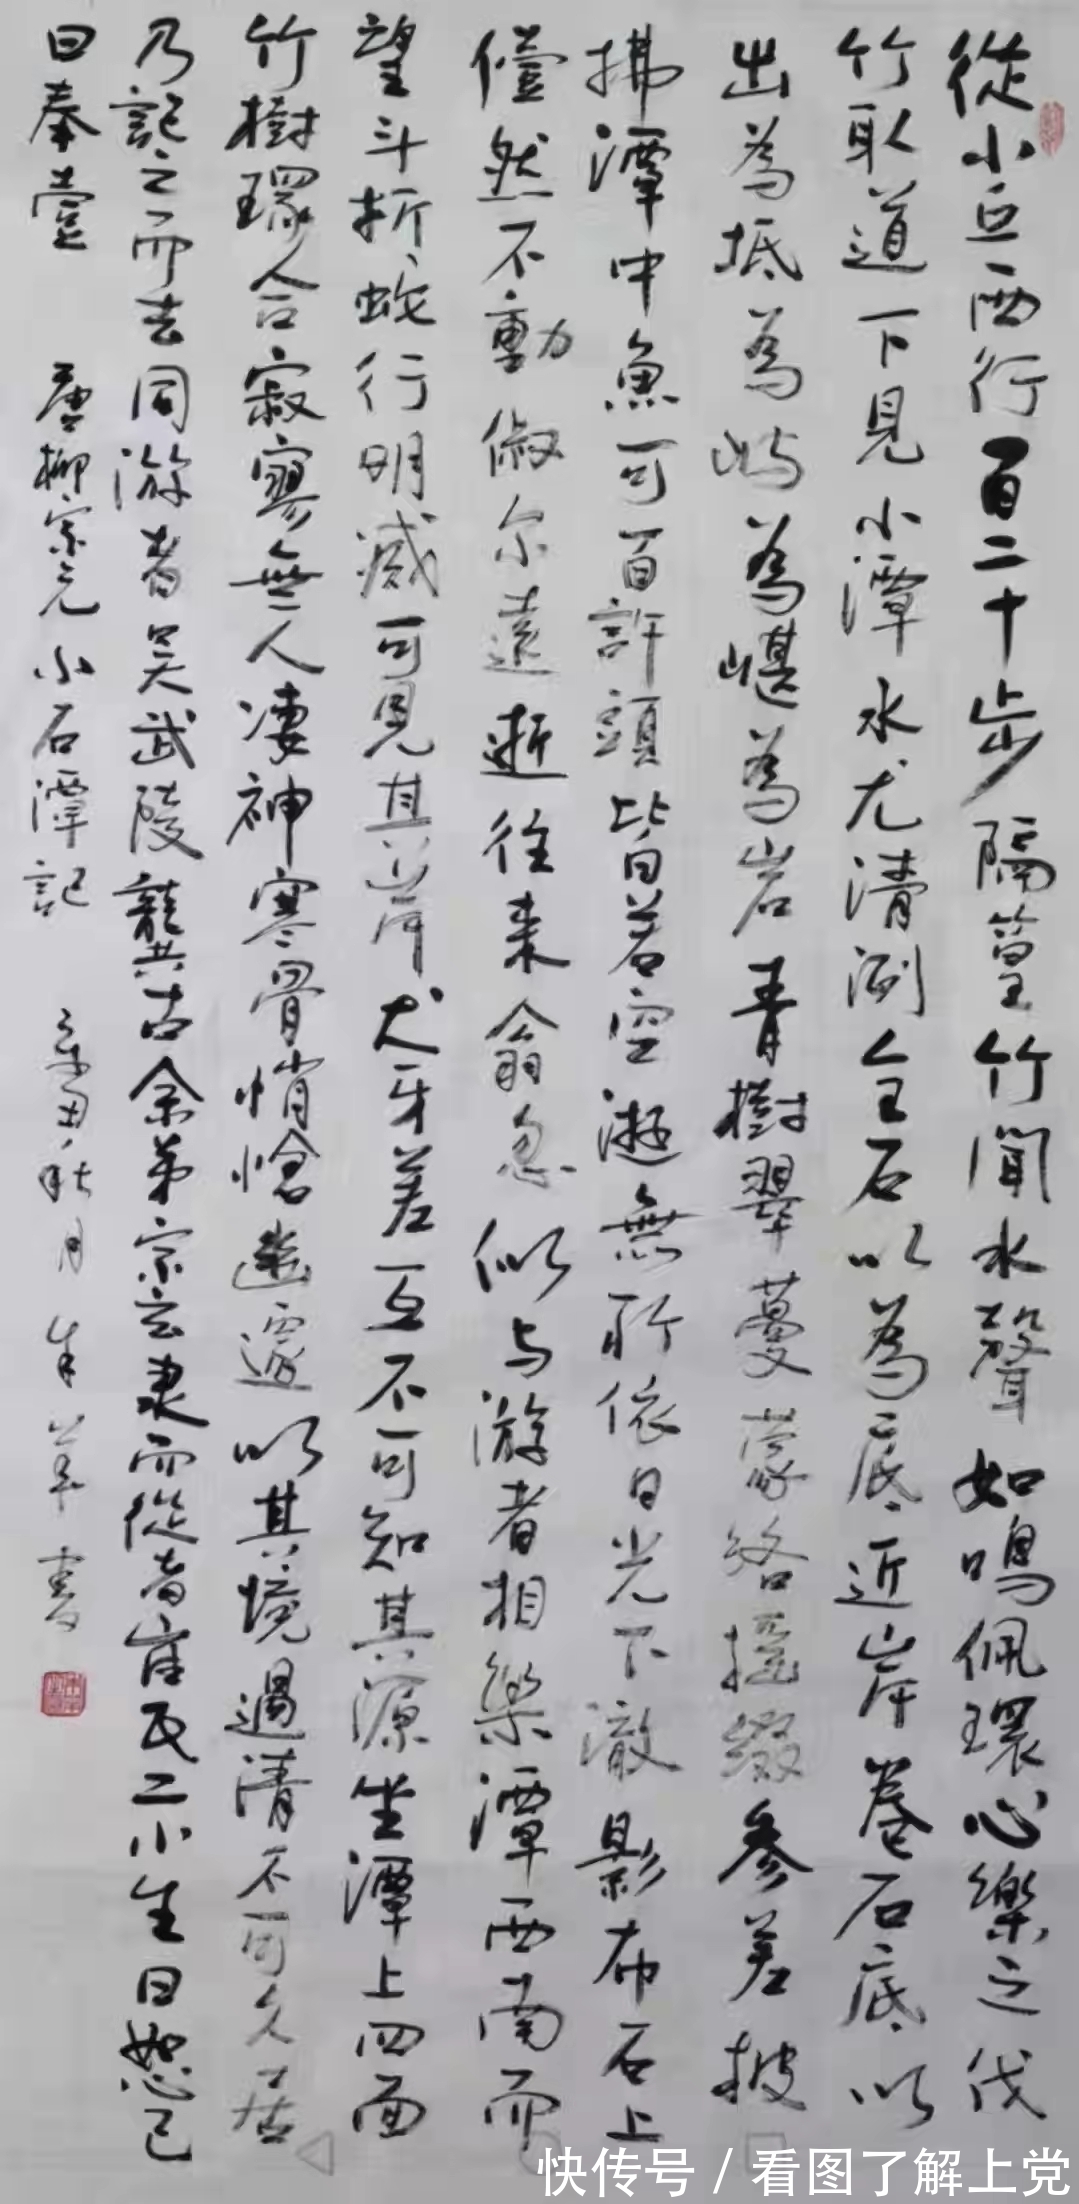 從小丘西行百二十步隔篁竹聞水聲如鳴佩環心樂之伐
竹取道下見小潭水尤清洌全石以為底近岸卷石底以
出為坻為嶼為嵁為岩青樹翠蔓蒙絡搖綴參差披
拂潭中魚可百許頭皆若空遊無所依日光下澈影布石上
佁然不動俶尔遠逝往來翕忽似与游者相樂潭西南而
望斗折蛇行明滅可見其岸犬牙差互不可知其源坐潭上四面
竹樹環合寂寥無人淒神寒骨悄愴幽邃以其境過清不可久居
乃記之而去同游者吴武陵龔古余弟宗玄隶而從者崔氏二小生曰恕己
曰奉壹 唐柳宗元小石潭記 辛丑秋月 書
快传号 / 看图了解上党